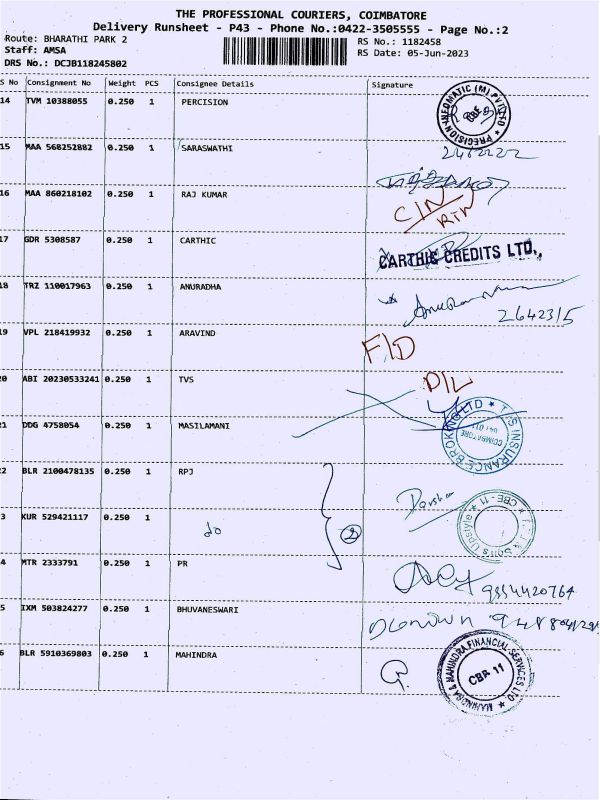 THE PROFESSIONAL COURIERS, COIMBATORE
Delivery Runsheet - P43 - Phone No.:0422-3505555 - Page No.:2
Route: BHARATHI PARK 2
RS No.: 1182458
Staff: AMSA
RS Date: 05-Jun-2023
DRS No.: DCJB118245802
S No Consignment No Weight PCS Consignee Details Signature
14 TVM 10388055 0.250 1 PERCISION
PRECISION
15 MAA 568252882 0.250 1 SARASWATHI
16 MAA 860218102 0.250 1 RAJ KUMAR
C/N
RTN
17 GDR 5308587 0.250 1 CARTHIC
CARTHIC CREDITS LTD.,
18 TRZ 110017963 0.250 1 ANURADHA
2642315
19 VPL 218419932 0.250 1 ARAVIND
F/D
20 ABI 20230533241 0.250 1 TVS
D/L
INSURANCE BROKING LTD
COIMBATORE
21 DDG 4758054 0.250 1 MASILAMANI
22 BLR 2100478135 0.250 1 RPJ
Darshan
CBE - 11
3 KUR 529421117 0.250 1
do
2
4 MTR 2333791 0.250 1 PR
9554420764
5 IXM 503824277 0.250 1 BHUVANESWARI
6 BLR 5910369803 0.250 1 MAHINDRA
MAHINDRA & MAHINDRA FINANCIAL SERVICES LTD
CBE 11